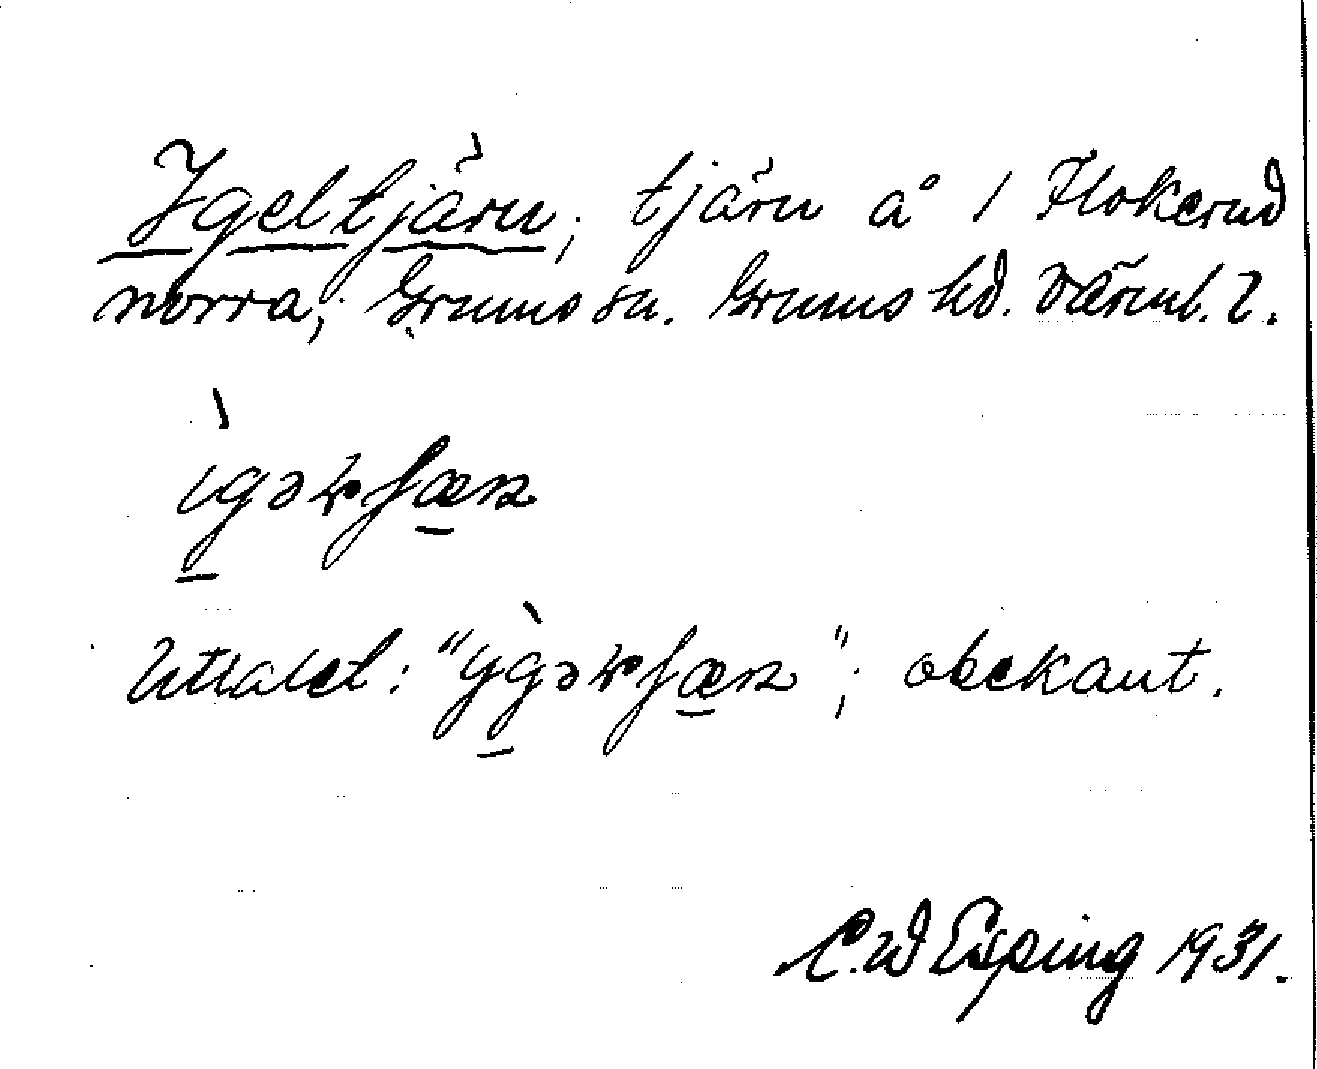 Igeltjärn; tjärn å 1 Flokerud
norra; Grums sn. Grums hd. Värml. l.
ìgəɽʃæɳ
Uttalet: "ỳgəɽʃæɳ"; obekant.
C.W Esping 1931.